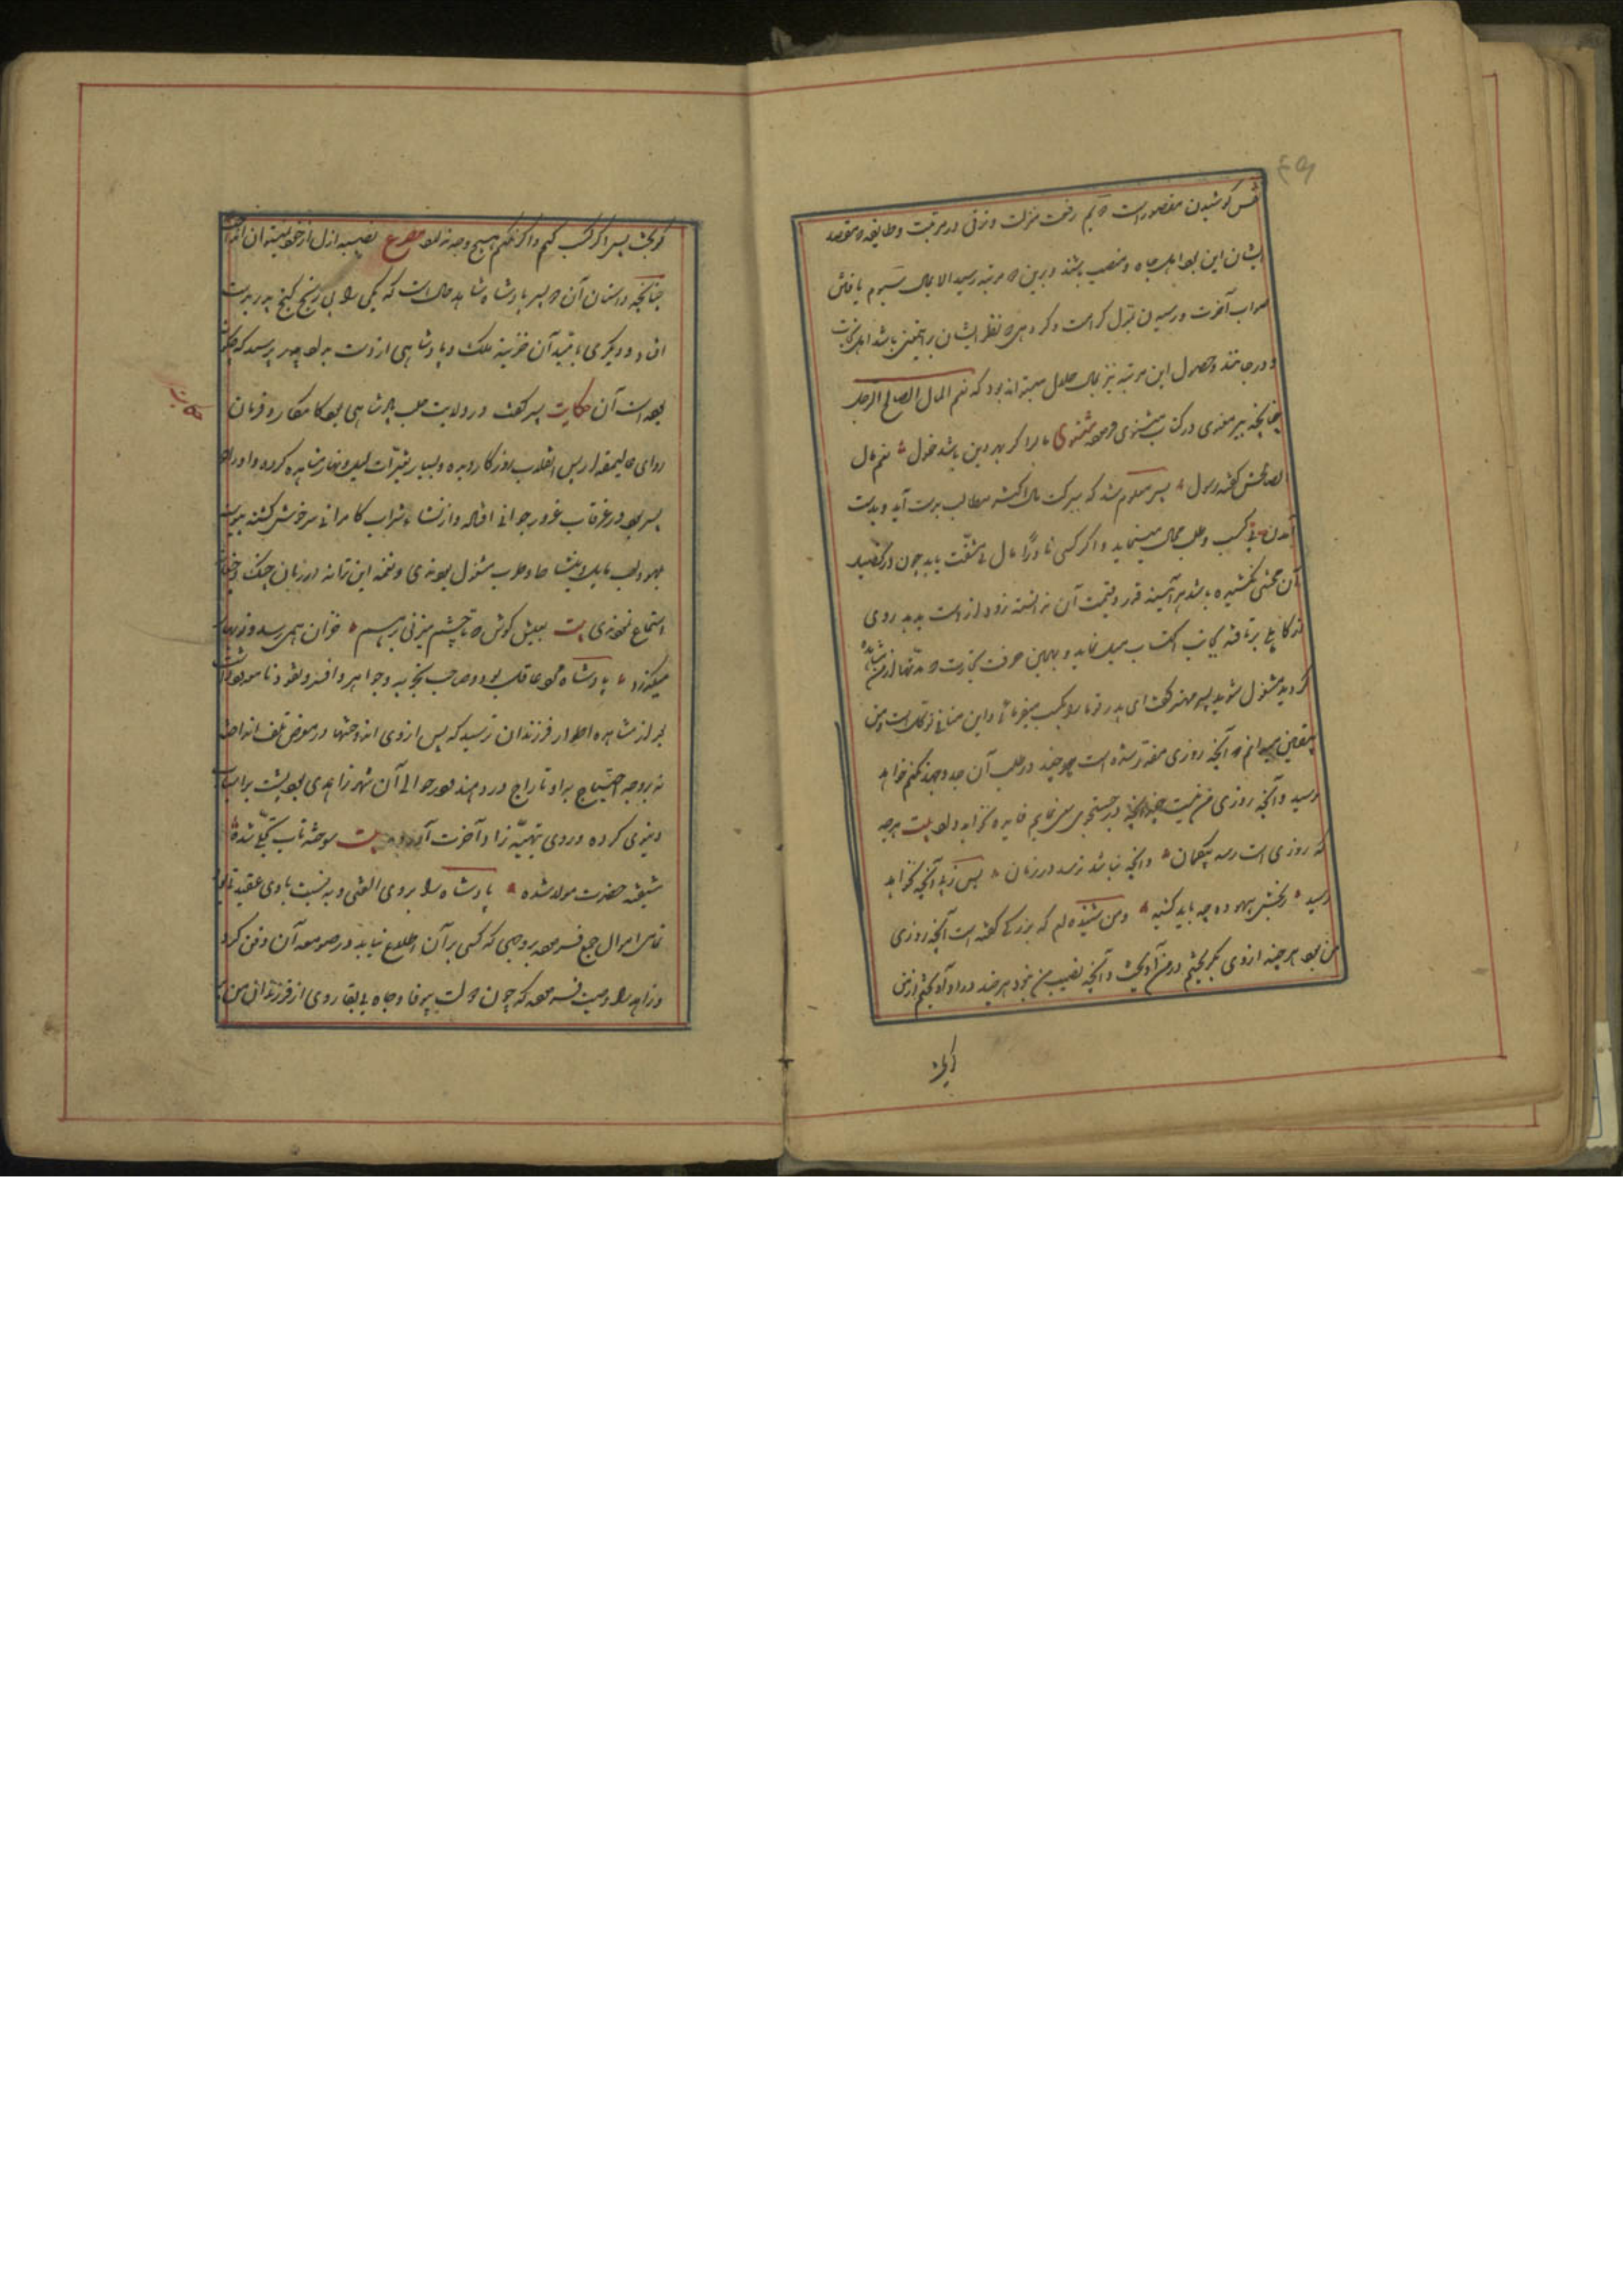 نفس کوشیدن مقصور است دوم رفعت منزلت و ترقی در مرتبت و طایفه که مقصد
ایشان این بود اهل جاه و منصب باشند و بدین مرتبه نتوان رسید الا بمال سیوم یافتن
ثواب آخرت و رسیدن بمنزل کرامت و گروهی که نظر ایشان برین باشد اهل نجات
و درجاتند و حصول این مرتبه نیز بمال حلال میتواند بود که نعم المال الصالح للرجل
چنانچه پیر معنوی در کتاب مثنوی فرموده مثنوی مال را کز بهر دین باشی حمول نعم مال
صالح گفتش رسول پس معلوم شد که ببرکت مال اکثر مطالب بدست آید و بدست
آمدن مال بی کسب و طلب محال مینماید و اگر کسی نادرا مال بی مشقت یابد چون در تحصیل
آن محنتی نکشیده باشد هر آینه قدر و قیمت آن ندانسته زود از دست بدهد روی
از کاهلی برتافته بجانب اکتساب میل نماید و بهمین حرفت تجارت که مدتها از من مشاهده
کردید مشغول شوید پسر مهتر گفت ای پدر تو ما را بکسب میفرمائی و این منافی توکلست و من
بیقین میدانم که آنچه روزی مقدر شده است هر چند در طلب آن جد و جهد نکنم خواهد
رسید و آنچه روزی من نیست چندانچه در جستجوی سعی نمایم فایده نخواهد داد بیت هرچه
که روزی است رسد بیگمان و آنچه نباشد نرسد در زمان پس زپی آنچه نخواهد
رسید رنجش بیهوده چه باید کشید و من شنیده ام که بزرگی گفته است آنچه روزی
من بود هر چند از وی بگریختم در من آویخت و آنچه نصیب من نبود هر چند در او آویختم از من
بگریخت پس اگر کسب کنیم و اگر نکنیم هیچ وجه نصیبه ازل از خود نمیتوان انداخت
چنانچه داستان آن دو پسر پادشاه شاهد حال است که یکی را بی رنج گنج پدر بدست
افتاد و دیگری بامید آن خزینه ملک و پادشاهی از دست بداد پدر پرسید که چگونه
بوده است آن حکایت پسر گفت در ولایت حلب پادشاهی بود کامکار و فرمان
روای عالیمقدار بس انقلاب روزگار دیده و بسیار تغیرات لیل و نهار مشاهده کرده و او را دو
پسر بود در غرقاب غرور جوانی افتاده و از نشاء شراب کامرانی سرخوش گشته پیوسته
بلهو و لعب مایل و بنشاط و طرب مشغول بودندی و نغمه این ترانه از زبان چنگ و چغانه
استماع نمودندی بیت بعیش کوش که تا چشم میزنی بر هم خزان همی رسد و نوبهار
میگذرد پادشاه مردی عاقل بود و صاحب تجربه و جواهر وافر و نقود نامعدود داشت
بعد از مشاهده اطوار فرزندان ترسید که پس از وی اندوختها در معرض تلف اندازند
نه بر وجه احتیاج بباد تاراج در دهند در حوالی آن شهر زاهدی بود پشت بر اسباب
دنیوی کرده و روی بتهیه زاد آخرت آورده بیت سوخته تاب تجلی شده
شیفته حضرت مولا شده پادشاه را بر وی التفاتی و به نسبت با وی عقیدتی بود
تمامی اموال جمع فرموده بر وجهی که کسی بر آن اطلاع نیابد در صومعه آن دفن کرد
و زاهد را وصیت فرمود که چون دولت بیوفا و جاه بی بقا روی از فرزندان من